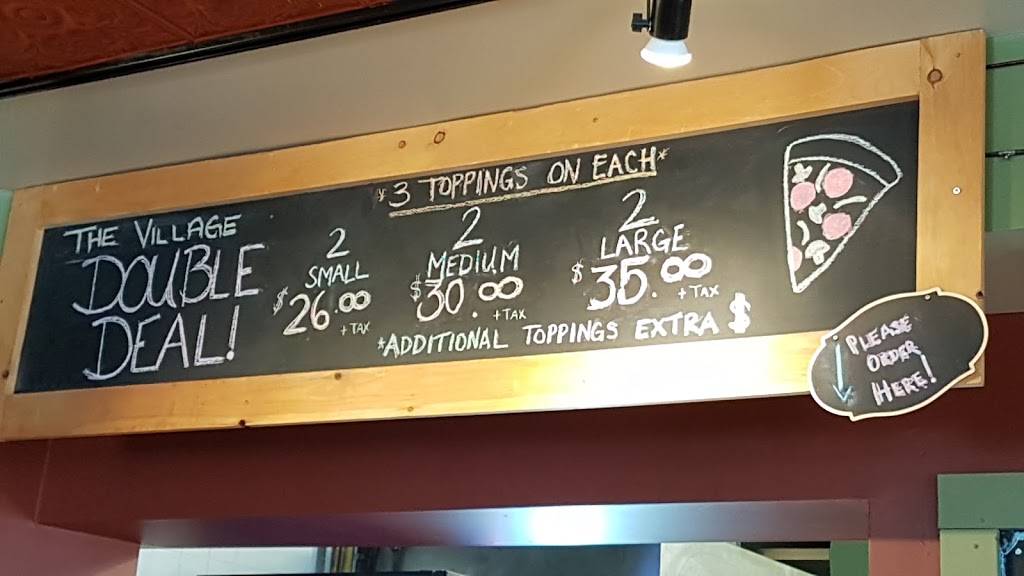 THE VILLAGE
DOUBLE
DEAL!
*3 TOPPINGS ON EACH*
2
SMALL
$26.00
+ TAX
2
MEDIUM
$30.00
+ TAX
2
LARGE
$35.00
+ TAX
*ADDITIONAL TOPPINGS EXTRA $
PLEASE
ORDER
HERE!